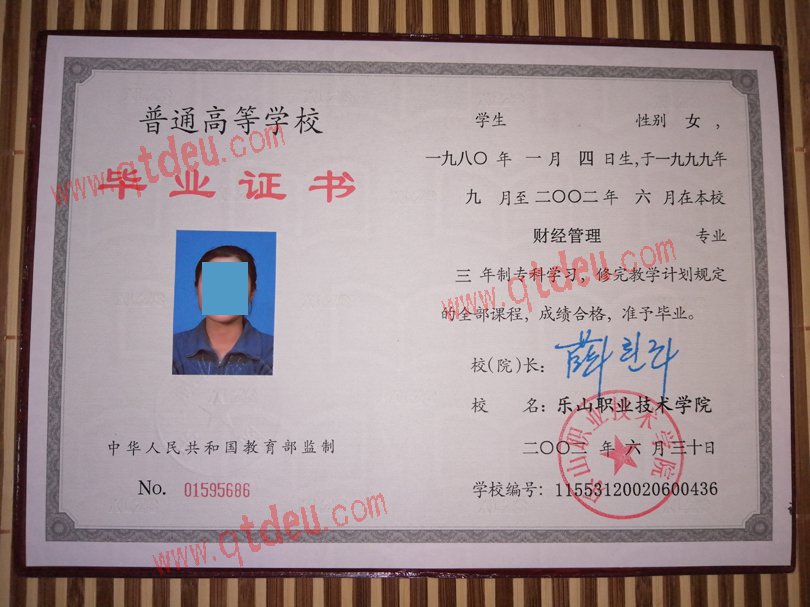 普通高等学校
毕业证书
www.qtdeu.com
中华人民共和国教育部监制
No. 01595686
www.qtdeu.com
学生 性别 女，
一九八〇年 一月 四日生，于一九九九年
九 月至二〇〇二年 六 月在本校
财经管理 专业
三 年制专科学习，修完教学计划规定
的全部课程，成绩合格，准予毕业。
www.qtdeu.com
校(院)长：
校 名：乐山职业技术学院
二〇〇二 年 六 月三十日
学校编号：11553120020600436
乐山职业技术学院